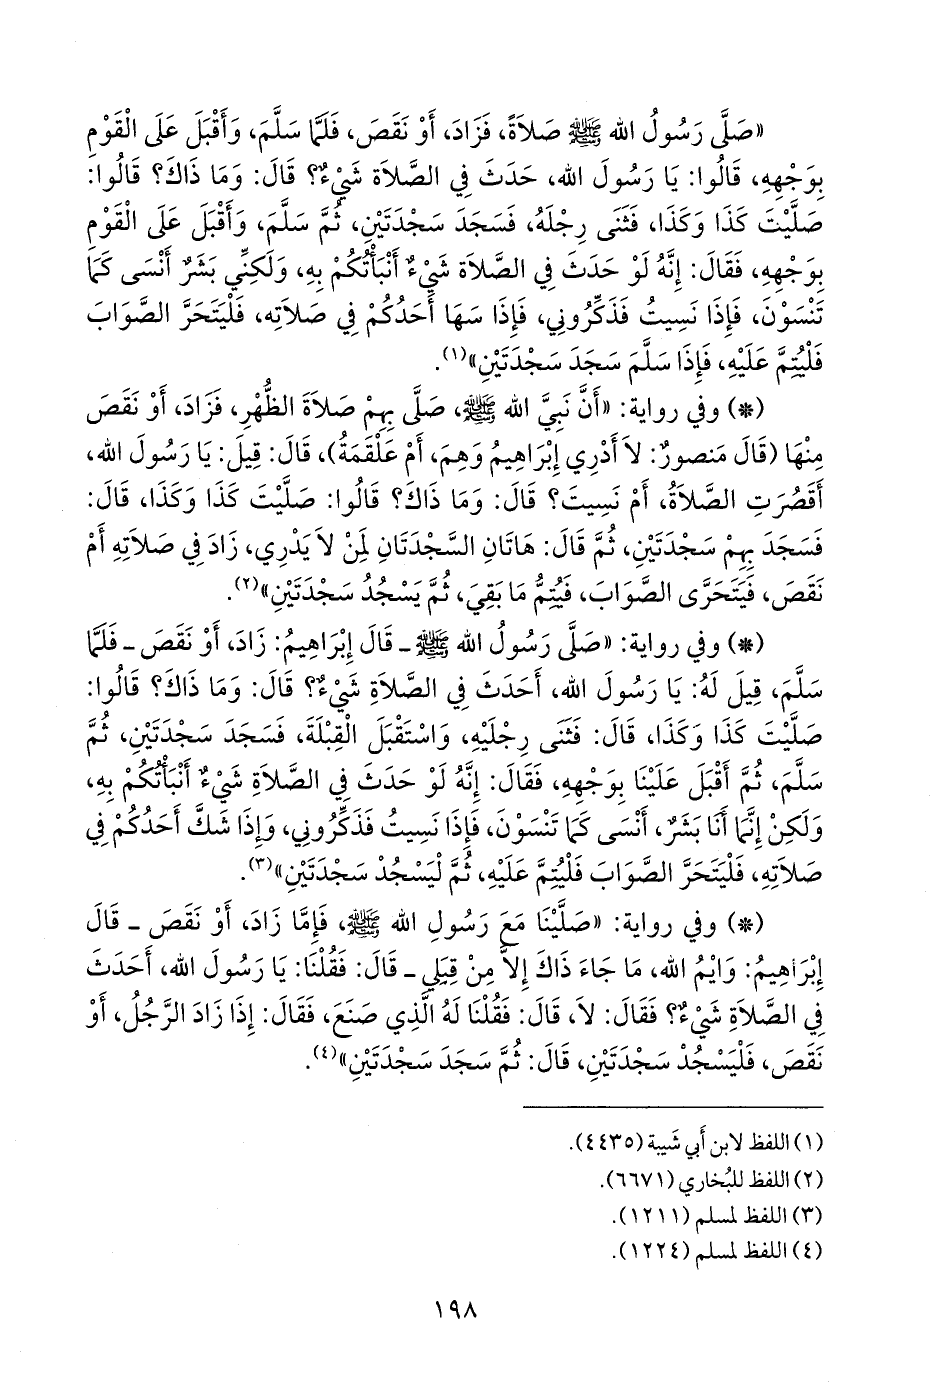 «صَلَّى رَسُولُ الله ﷺ صَلاَةً، فَزَادَ، أَوْ نَقَصَ، فَلَمَّا سَلَّمَ، وَأَقْبَلَ عَلَى الْقَوْمِ
بِوَجْهِهِ، قَالُوا: يَا رَسُولَ الله، حَدَثَ فِي الصَّلاَة شَيْءٌ؟ قَالَ: وَمَا ذَاكَ؟ قَالُوا:
صَلَّيْتَ كَذَا وَكَذَا، فَثَنَى رِجْلَهُ، فَسَجَدَ سَجْدَتَيْنِ، ثُمَّ سَلَّمَ، وَأَقْبَلَ عَلَى الْقَوْمِ
بِوَجْهِهِ، فَقَالَ: إِنَّهُ لَوْ حَدَثَ فِي الصَّلاَة شَيْءٌ أَنْبَأْتُكُمْ بِهِ، وَلَكِنِّي بَشَرٌ أَنْسَى كَمَا
تَنْسَوْنَ، فَإِذَا نَسِيتُ فَذَكِّرُونِي، فَإِذَا سَهَا أَحَدُكُمْ فِي صَلاَتِه، فَلْيَتَحَرَّ الصَّوَابَ
فَلْيُتِمَّ عَلَيْهِ، فَإِذَا سَلَّمَ سَجَدَ سَجْدَتَيْنِ»(١).
(*) وفي رواية: «أَنَّ نَبِيَّ الله ﷺ، صَلَّى بِهِمْ صَلاَةَ الظُّهْرِ، فَزَادَ، أَوْ نَقَصَ
مِنْهَا (قَالَ مَنصورٌ: لاَ أَدْرِي إِبْرَاهِيمُ وَهِمَ، أَمْ عَلْقَمَةُ)، قَالَ: قِيلَ: يَا رَسُولَ الله،
أَقَصُرَتِ الصَّلاَةُ، أَمْ نَسِيتَ؟ قَالَ: وَمَا ذَاكَ؟ قَالُوا: صَلَّيْتَ كَذَا وَكَذَا، قَالَ:
فَسَجَدَ بِهِمْ سَجْدَتَيْنِ، ثُمَّ قَالَ: هَاتَانِ السَّجْدَتَانِ لِمَنْ لاَ يَدْرِي، زَادَ فِي صَلاَتِهِ أَمْ
نَقَصَ، فَيَتَحَرَّى الصَّوَابَ، فَيُتِمُّ مَا بَقِيَ، ثُمَّ يَسْجُدُ سَجْدَتَيْنِ»(٢).
(*) وفي رواية: «صَلَّى رَسُولُ الله ﷺ ـ قَالَ إِبْرَاهِيمُ: زَادَ، أَوْ نَقَصَ ـ فَلَمَّا
سَلَّمَ، قِيلَ لَهُ: يَا رَسُولَ الله، أَحَدَثَ فِي الصَّلاَةِ شَيْءٌ؟ قَالَ: وَمَا ذَاكَ؟ قَالُوا:
صَلَّيْتَ كَذَا وَكَذَا، قَالَ: فَثَنَى رِجْلَيْهِ، وَاسْتَقْبَلَ الْقِبْلَةَ، فَسَجَدَ سَجْدَتَيْنِ، ثُمَّ
سَلَّمَ، ثُمَّ أَقْبَلَ عَلَيْنَا بِوَجْهِهِ، فَقَالَ: إِنَّهُ لَوْ حَدَثَ فِي الصَّلاَةِ شَيْءٌ أَنْبَأْتُكُمْ بِهِ،
وَلَكِنْ إِنَّمَا أَنَا بَشَرٌ، أَنْسَى كَمَا تَنْسَوْنَ، فَإِذَا نَسِيتُ فَذَكِّرُونِي، وَإِذَا شَكَّ أَحَدُكُمْ فِي
صَلاَتِهِ، فَلْيَتَحَرَّ الصَّوَابَ فَلْيُتِمَّ عَلَيْهِ، ثُمَّ لْيَسْجُدْ سَجْدَتَيْنِ»(٣).
(*) وفي رواية: «صَلَّيْنَا مَعَ رَسُولِ الله ﷺ، فَإِمَّا زَادَ، أَوْ نَقَصَ ـ قَالَ
إِبْرَاهِيمُ: وَايْمُ الله، مَا جَاءَ ذَاكَ إِلاَّ مِنْ قِبَلِي ـ قَالَ: فَقُلْنَا: يَا رَسُولَ الله، أَحَدَثَ
فِي الصَّلاَةِ شَيْءٌ؟ فَقَالَ: لاَ، قَالَ: فَقُلْنَا لَهُ الَّذِي صَنَعَ، فَقَالَ: إِذَا زَادَ الرَّجُلُ، أَوْ
نَقَصَ، فَلْيَسْجُدْ سَجْدَتَيْنِ، قَالَ: ثُمَّ سَجَدَ سَجْدَتَيْنِ»(٤).
(١) اللفظ لابن أَبي شَيبة (٤٤٣٥).
(٢) اللفظ للبُخاري (٦٦٧١).
(٣) اللفظ لمسلم (١٢١١).
(٤) اللفظ لمسلم (١٢٢٤).
١٩٨